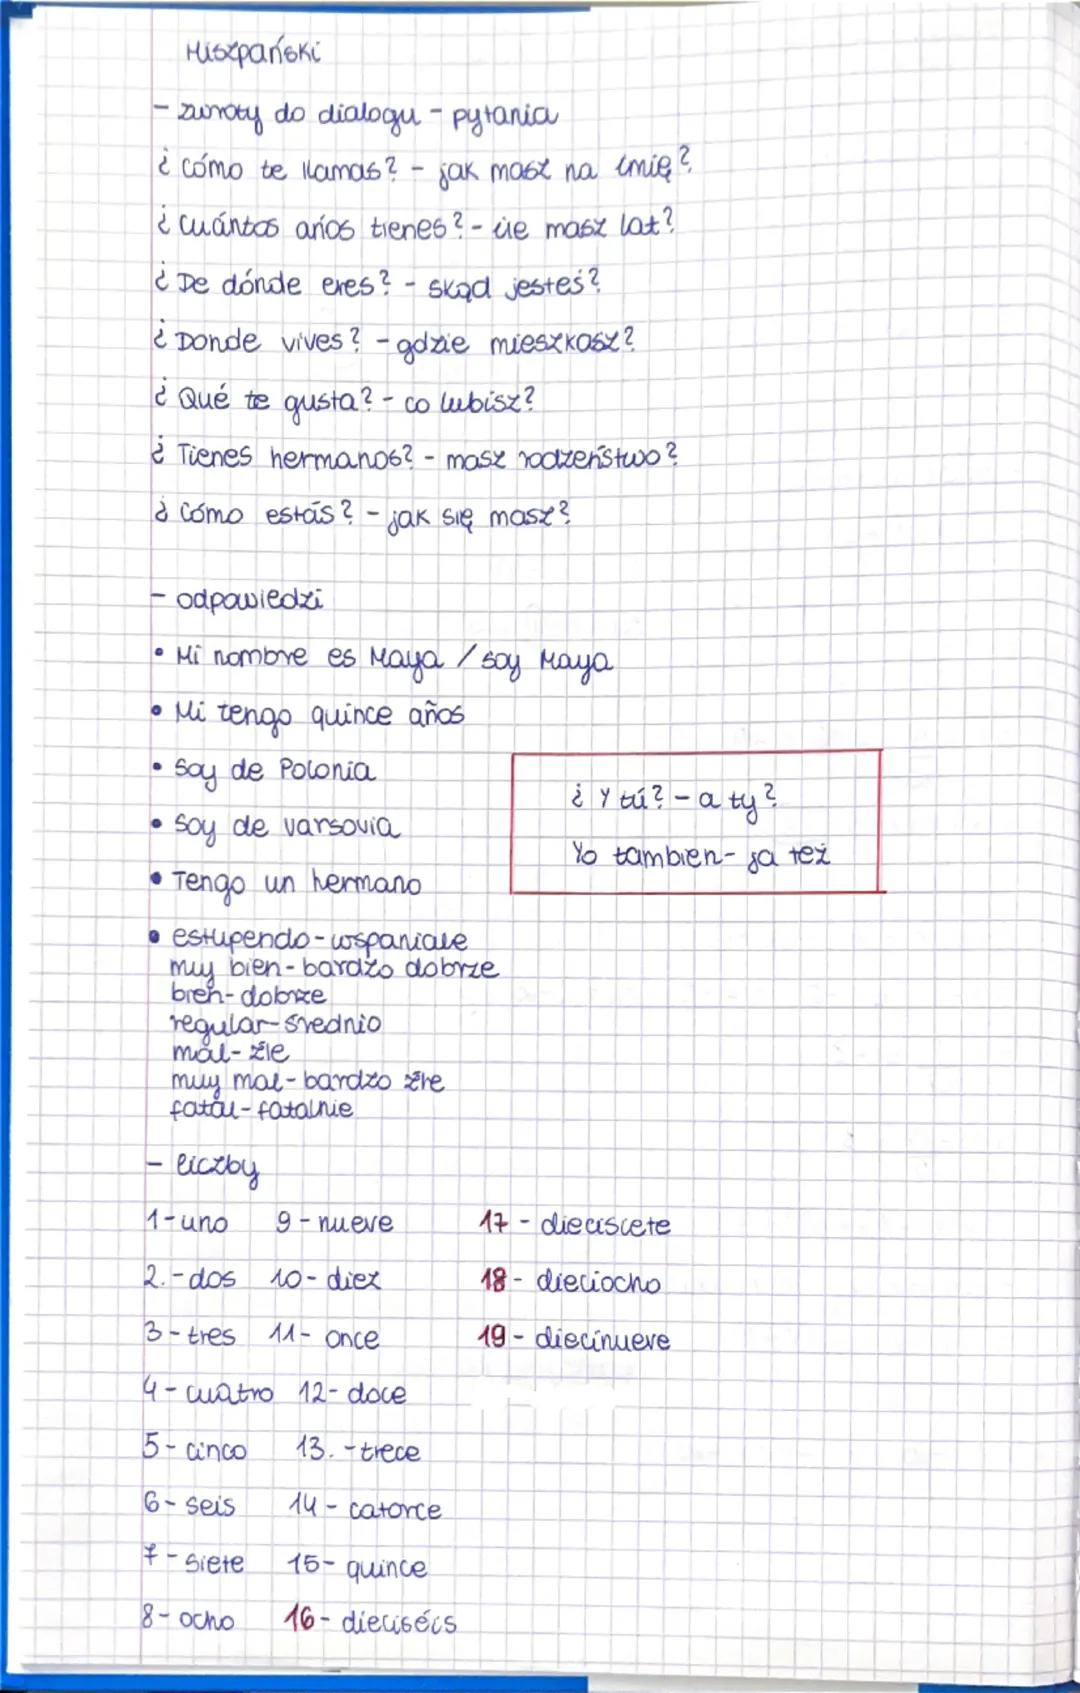 Hiszpański
- zwroty do dialogu - pytania
¿ Cómo te llamas? - jak masz na imię?
¿ Cuántos años tienes? - ile masz lat?
¿ De dónde eres? - skąd jesteś?
¿ Donde vives? - gdzie mieszkasz?
¿ Qué te gusta? - co lubisz?
¿ Tienes hermanos? - masz rodzeństwo?
¿ Cómo estás? - jak się masz?
- odpowiedzi
• Mi nombre es Maya / soy Maya
• Mi tengo quince años
• Soy de Polonia
• Soy de varsovia
• Tengo un hermano
¿ Y tú? - a ty?
Yo tambien - ja też
• estupendo - wspaniale
muy bien - bardzo dobrze
bien - dobrze
regular - średnio
mal - źle
muy mal - bardzo źle
fatal - fatalnie
- liczby
1 - uno 9 - nueve 17 - dieciscete
2. - dos 10 - diez 18 - dieciocho
3 - tres 11 - once 19 - diecinueve
4 - cuatro 12 - doce
5 - cinco 13. - trece
6 - seis 14 - catorce
7 - siete 15 - quince
8 - ocho 16 - dieciséis